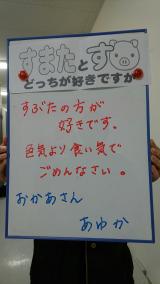 すまたとす
どっちが好きですか
すぶたの方が
好きです。
色気より食い気で
ごめんなさい。
おかあさん
あゆか